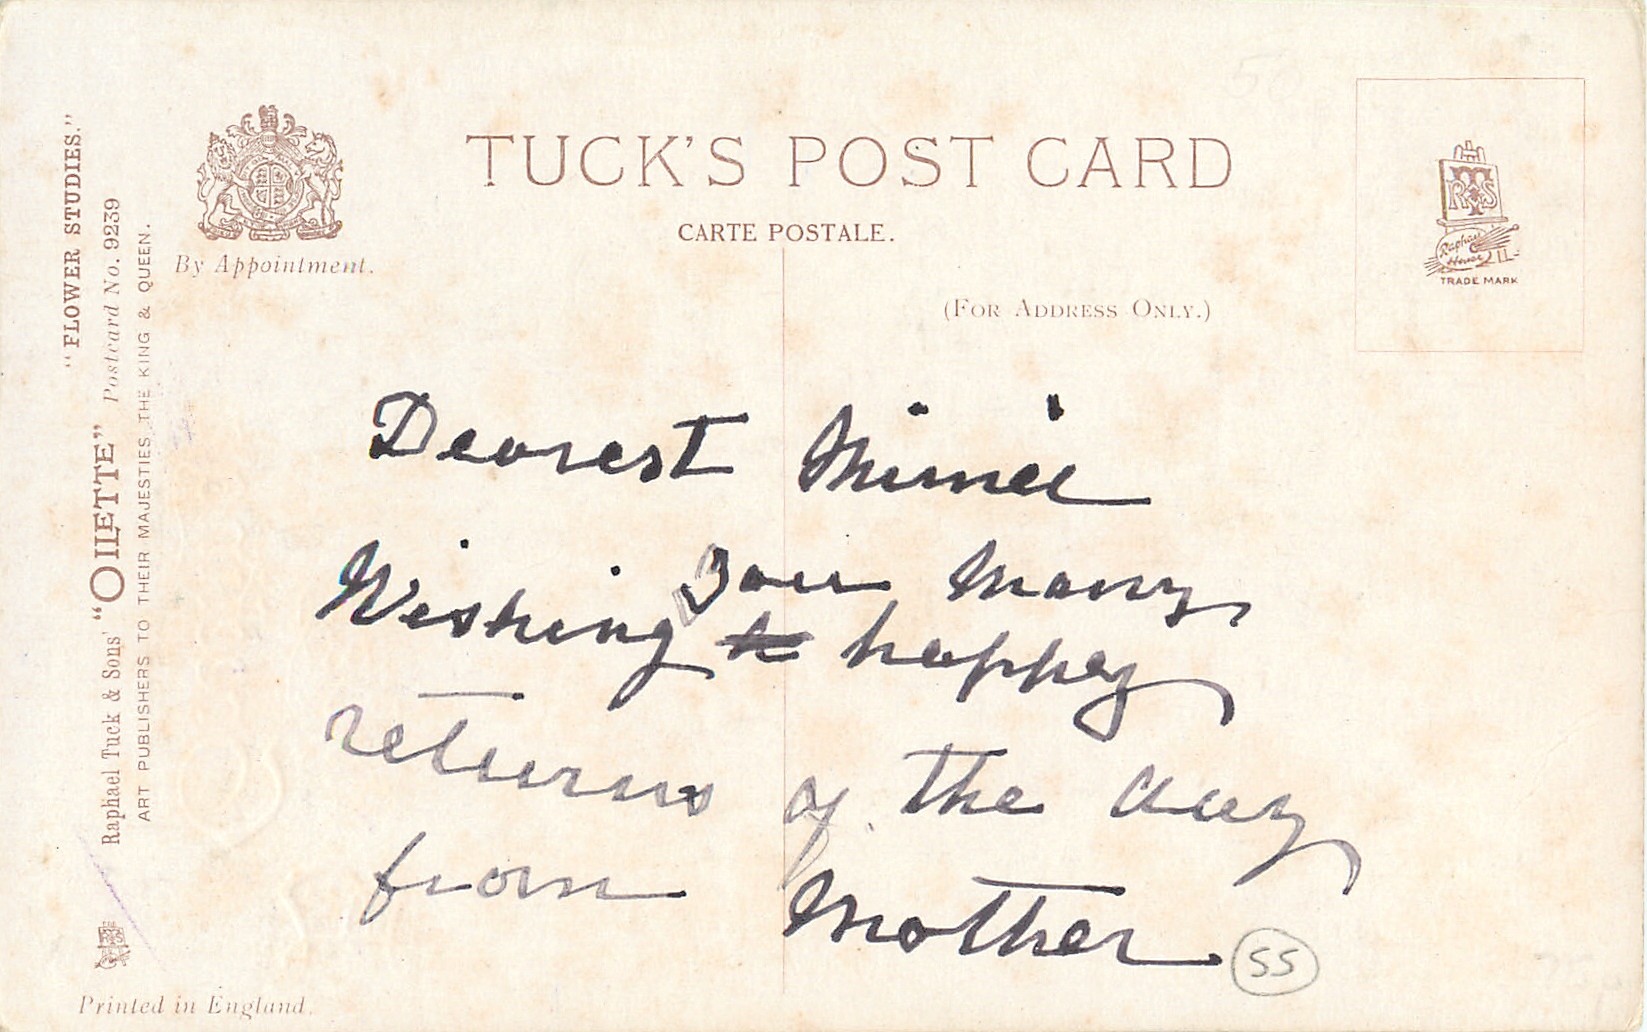 TUCK'S POST CARD
CARTE POSTALE.
(FOR ADDRESS ONLY.)
By Appointment.
"FLOWER STUDIES."
Raphael Tuck & Sons' "OILETTE" Postcard No. 9239
ART PUBLISHERS TO THEIR MAJESTIES THE KING & QUEEN.
Printed in England.
RTS
Raphael
House
TRADE MARK
Dearest
you many
Wishing happy
returns of the day
from Mother
55